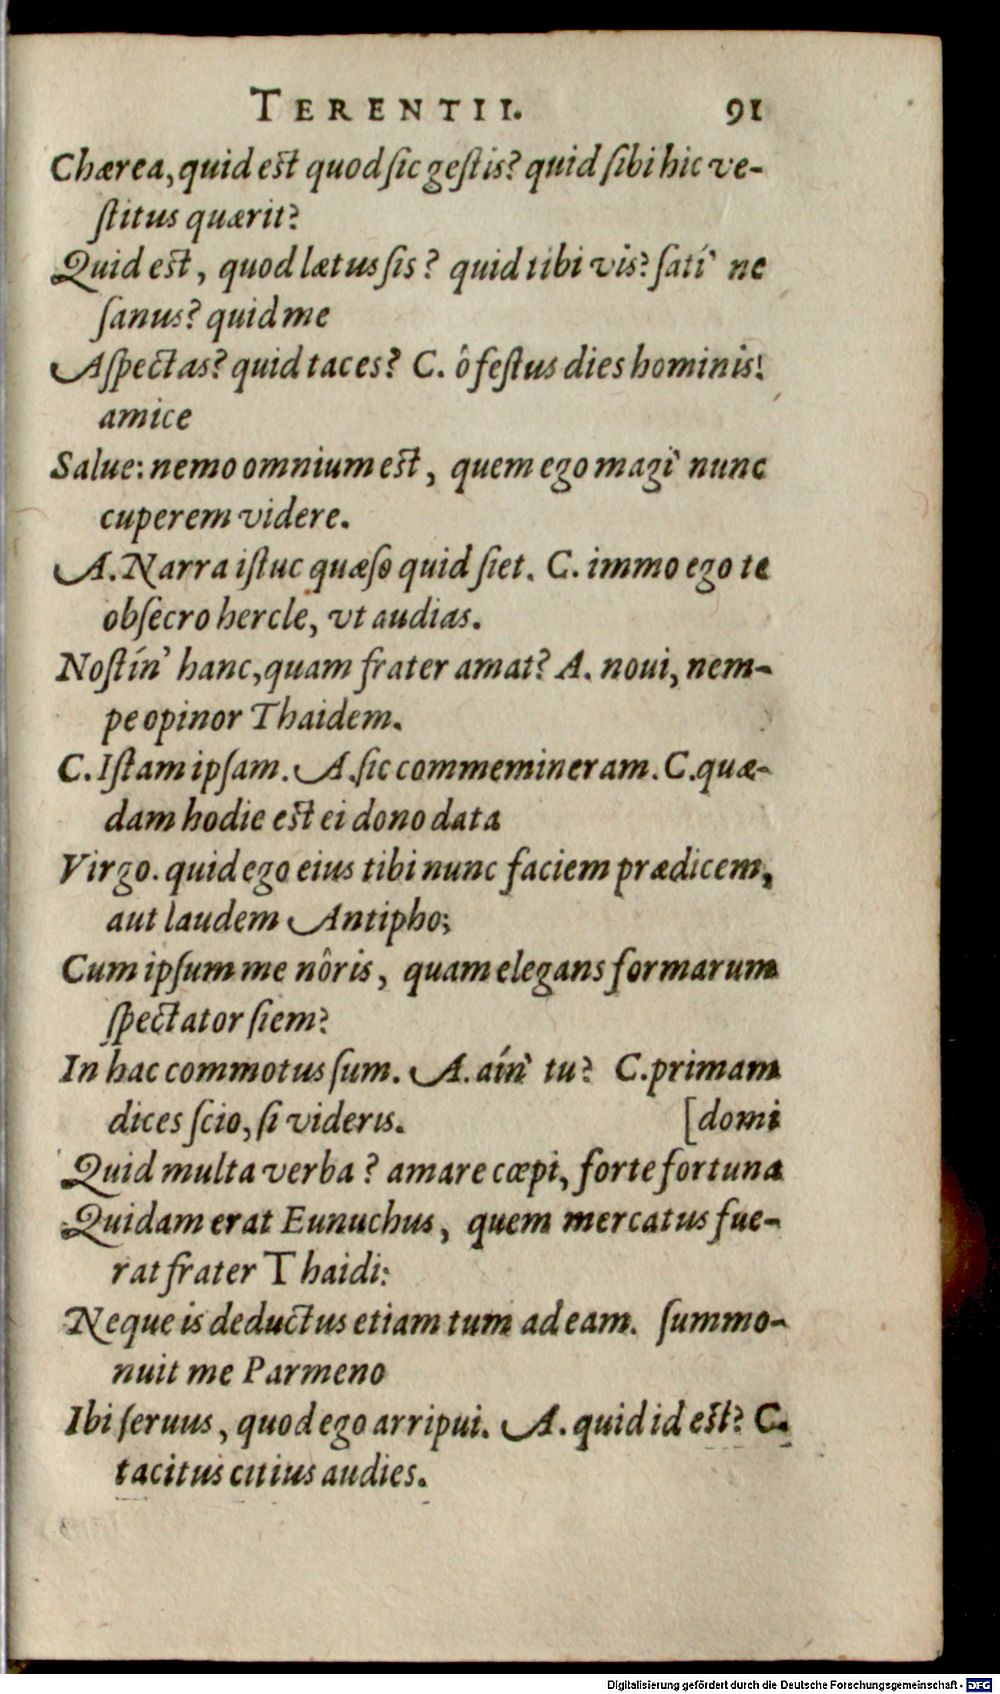 TERENTII. 91
Chærea, quid est quod sic gestis? quid sibi hic ve-
stitus quærit?
Quid est, quod lætus sis? quid tibi vis? satí' ne
sanus? quid me
Aspectas? quid taces? C. ô festus dies hominis!
amice
Salue: nemo omnium est, quem ego magi' nunc
cuperem videre.
A. Narra istuc quæso quid siet. C. immo ego te
obsecro hercle, vt audias.
Nostín' hanc, quam frater amat? A. noui, nem-
pe opinor Thaidem.
C. Istam ipsam. A. sic commemineram. C. quæ-
dam hodie est ei dono data
Virgo. quid ego eius tibi nunc faciem prædicem,
aut laudem Antipho;
Cum ipsum me nôris, quam elegans formarum
spectator siem?
In hac commotus sum. A. aín' tu? C. primam
dices scio, si videris. [domi
Quid multa verba? amare cœpi, forte fortuna
Quidam erat Eunuchus, quem mercatus fue-
rat frater Thaidi:
Neque is deductus etiam tum ad eam. summo-
nuit me Parmeno
Ibi seruus, quod ego arripui. A. quid id est? C.
tacitus citius audies.
Digitalisierung gefördert durch die Deutsche Forschungsgemeinschaft - DFG